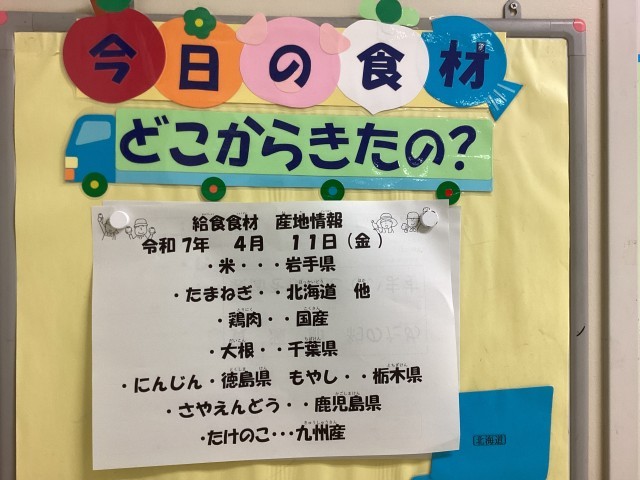 今日の食材
どこからきたの?
給食食材　産地情報
令和7年　4月　11日(金)
・米・・・岩手県
・たまねぎ・・北海道　他
・鶏肉・・国産
・大根・・千葉県
・にんじん・徳島県　もやし・・栃木県
・さやえんどう・・鹿児島県
・たけのこ・・・九州産
北海道